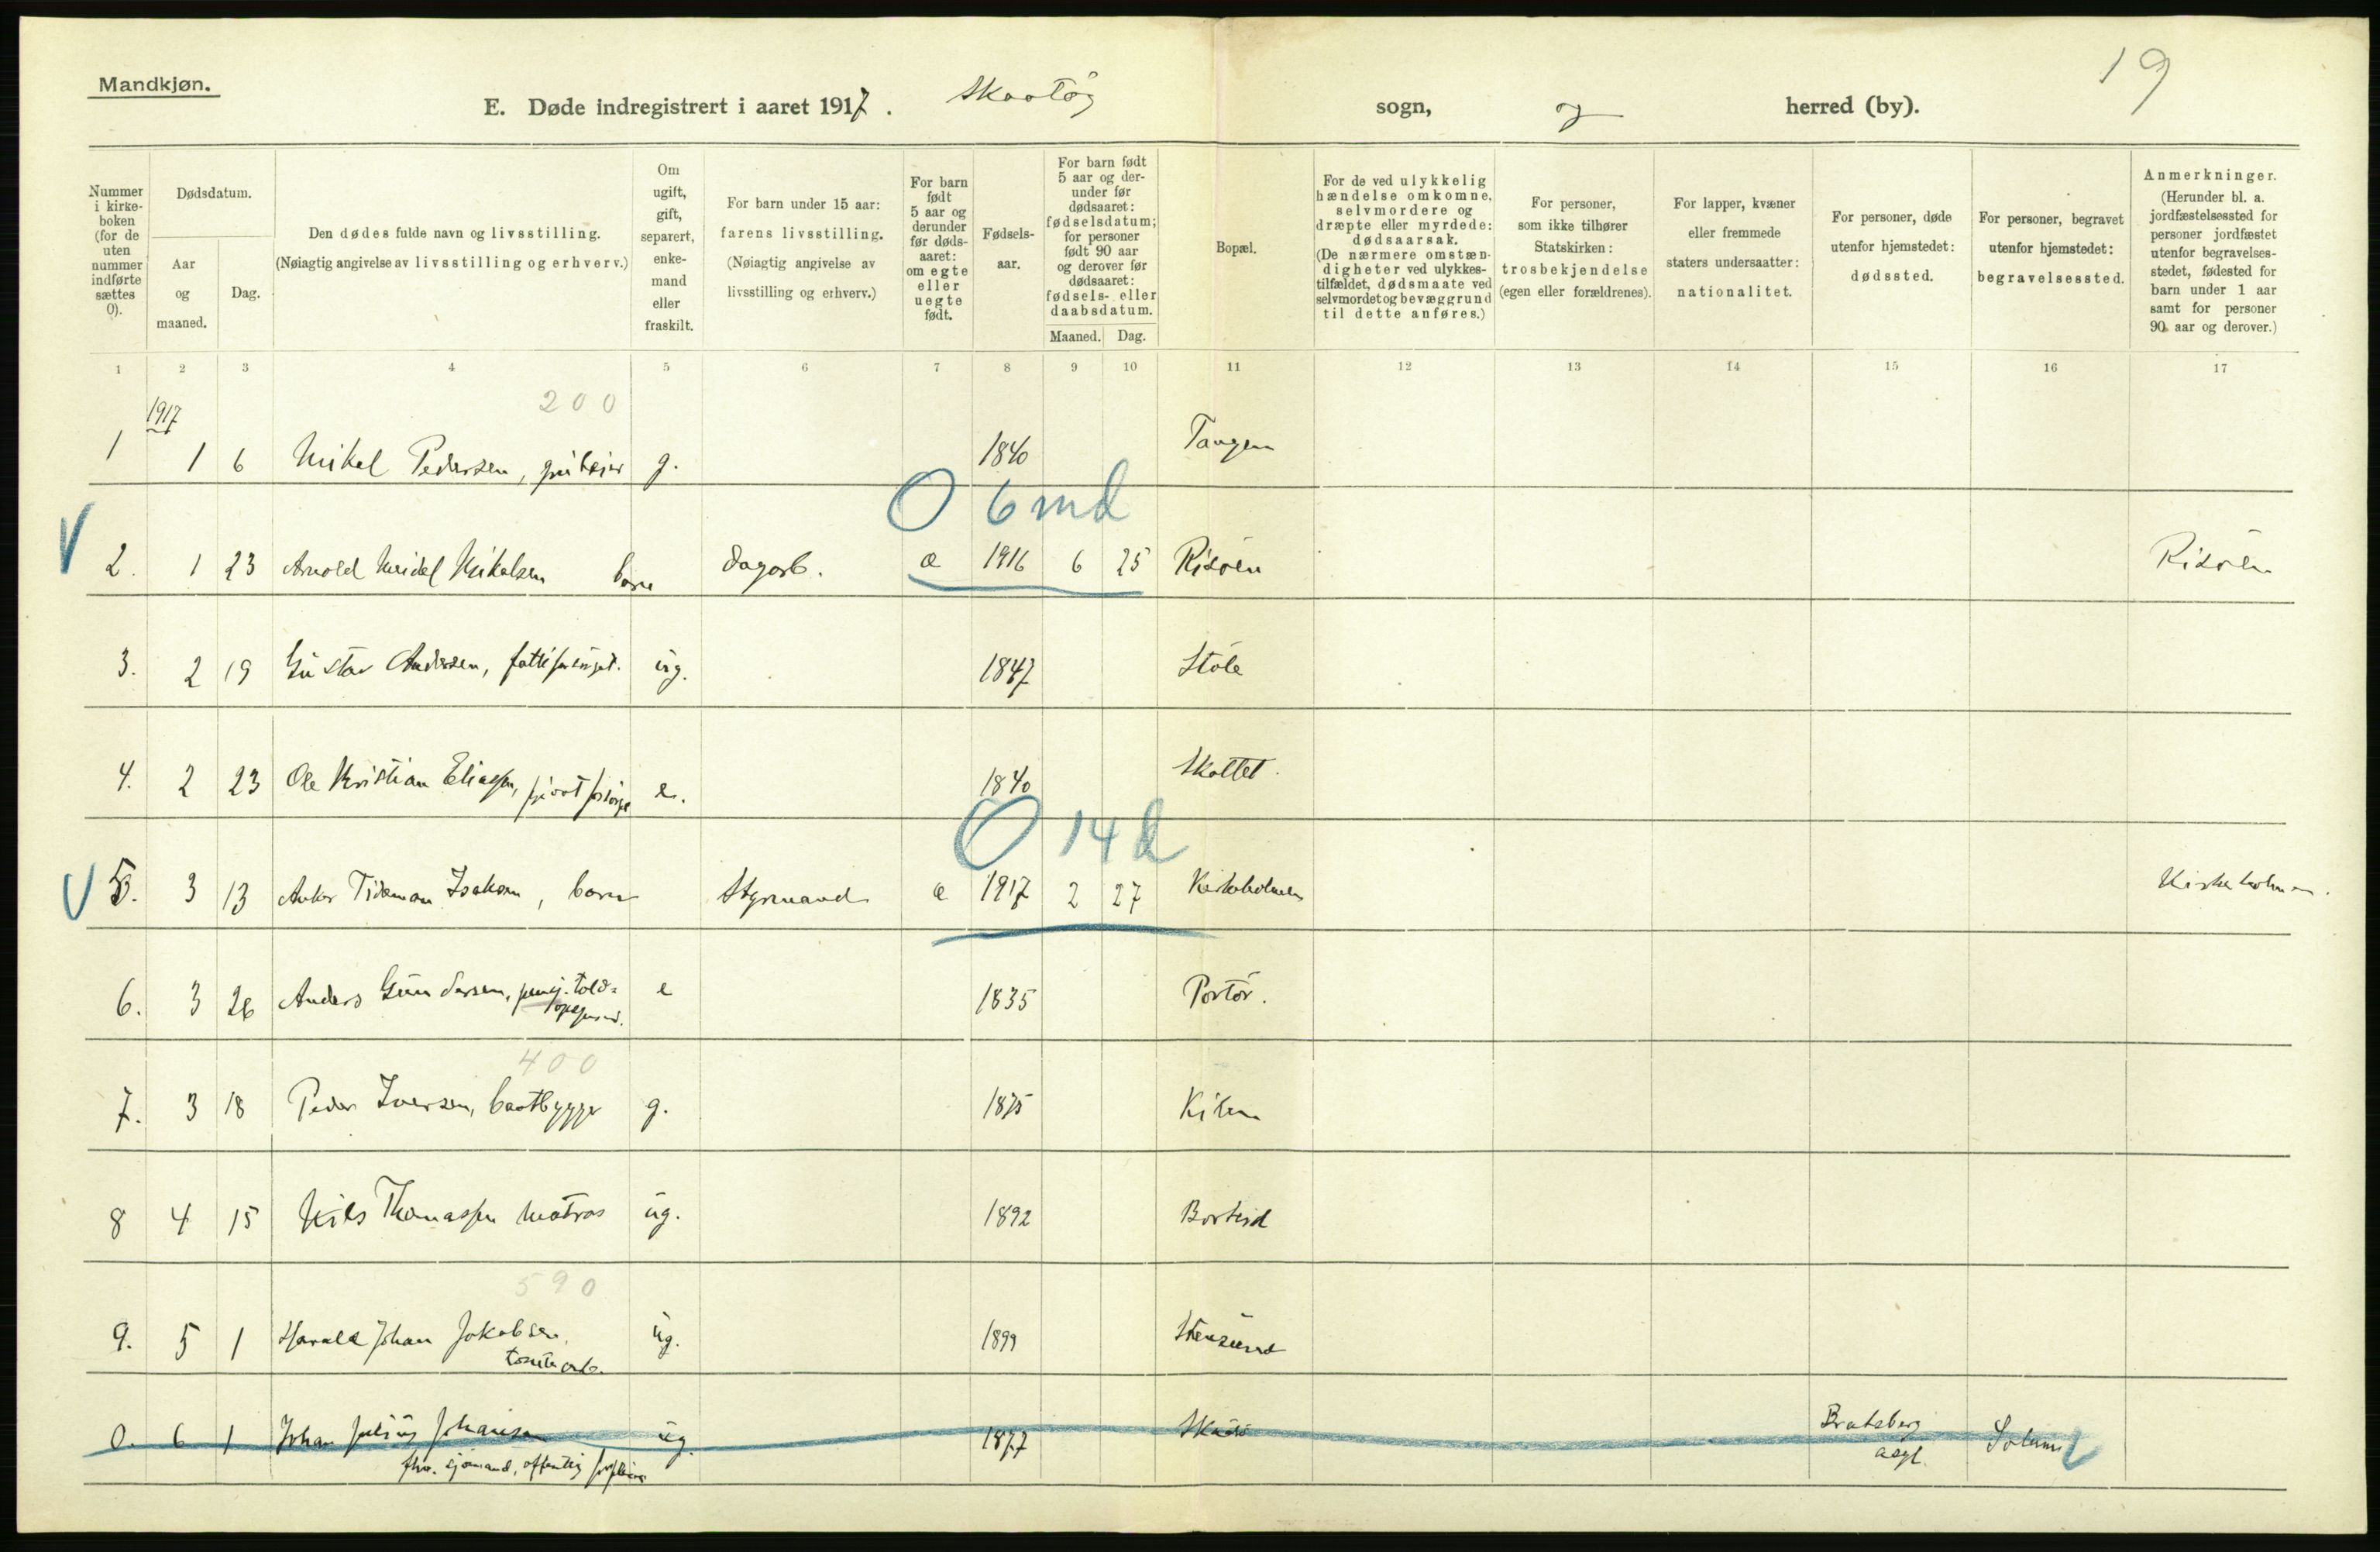 19
Mandkjøn.
E. Døde indregistrert i aaret 1917. Skaatøy sogn, herred (by).
Nummer i kirkeboken (for de uten nummer indførte sættes 0).
Dødsdatum.
Aar og maaned.
Dag.
Den dødes fulde navn og livsstilling.
(Nøiagtig angivelse av livsstilling og erhverv.)
Om ugift, gift, separert, enkemand eller fraskilt.
For barn under 15 aar: farens livsstilling.
(Nøiagtig angivelse av livsstilling og erhverv.)
For barn født 5 aar og derunder før dødsaaret: om egte eller uegte født.
Fødselsaar.
For barn født 5 aar og derunder før dødsaaret: fødselsdatum; for personer født 90 aar og derover før dødsaaret: fødsels- eller daabsdatum.
Maaned. Dag.
Bopæl.
For de ved ulykkelig hændelse omkomne, selvmordere og dræpte eller myrdede: dødsaarsak.
(De nærmere omstændigheter ved ulykkestilfældet, dødsmaate ved selvmordet og bevæggrund til dette anføres.)
For personer, som ikke tilhører Statskirken: trosbekjendelse (egen eller forældrenes).
For lapper, kvæner eller fremmede staters undersaatter: nationalitet.
For personer, døde utenfor hjemstedet: dødssted.
For personer, begravet utenfor hjemstedet: begravelsessted.
Anmerkninger.
(Herunder bl. a. jordfæstelsessted for personer jordfæstet utenfor begravelsesstedet, fødested for barn under 1 aar samt for personer 90 aar og derover.)
1 2 3 4 5 6 7 8 9 10 11 12 13 14 15 16 17
1917
200
1 1 6 Mikal Pedersen, g. 1840 Tangen
0 6 md
2. 1 23 Arnold Meidel Mikalsen barn dagarb. e 1916 6 25 Risöen Risöen
3. 2 19 Gustav Andersen, ug. 1847 Stöle
4. 2 23 Ole Kristian Eliassen, e. 1840 Skottet.
0 14 d
5. 3 13 Anker Tideman Isaksen, barn Styrmand e 1917 2 27 Kirkeholmen Kirkeholmen.
6. 3 26 Anders Gundersen, pensj. told= e 1835 Portör.
400
7. 3 18 Peder Iversen, baatbygger g. 1875 Kilen
8 4 15 Nils Thomassen matros ug. 1892 Borteid
590
9. 5 1 Harald Johan Jakobsen, ug. 1899 Stensund
tomtearb.
0. 6 1 Johan Julius Johansen ug. 1877 Skaatö Bratsberg asyl. Solum
fhv. sjömand, offentlig